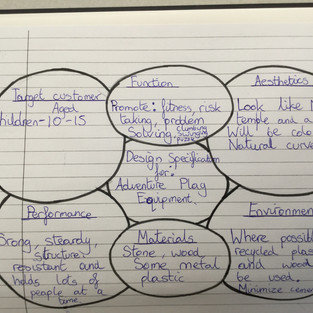 Target customer
Aged
children-10-15
Function
Promote: fitness, risk
taking, problem
Solving. Climbing
Swinging
Puzzle
Aesthetics
Look like
temple and a
Will be colo
Natural curve
Design Specification
for:
Adventure Play
Equipment.
Performance
Strong, steardy,
structure.
resistant and
holds lots of
people at a
time.
Materials
Stone, wood
Some metal
plastic
Environmen
Where possib
recycled plas
and wood
be used.
Minimize